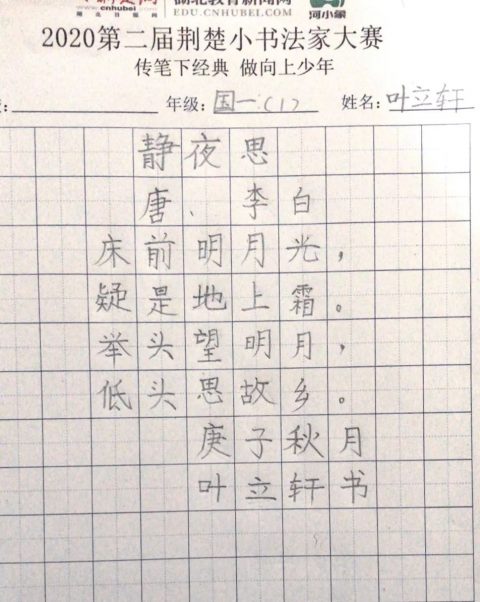 EDU.CNHUBEI.COM
河小象
2020第二届荆楚小书法家大赛
传笔下经典 做向上少年
年级：国一（1） 姓名：叶立轩
静夜思
唐、李白
床前明月光，
疑是地上霜。
举头望明月，
低头思故乡。
庚子秋月
叶立轩书